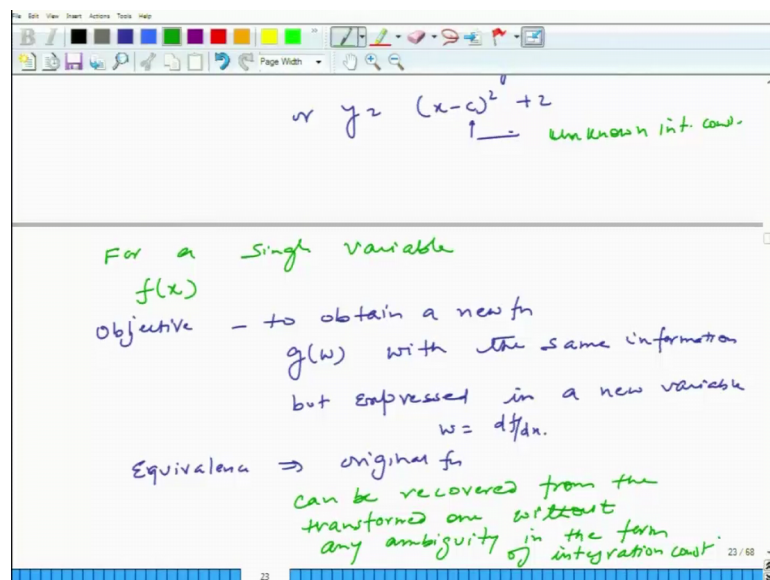 File Edit View Insert Actions Tools Help
B I
Page Width
or y = (x-c)² + 2
unknown int. const.
For a single variable
f(x)
Objective - to obtain a new fn
g(w) with the same information
but expressed in a new variable
w = df/dx.
Equivalence ⇒ original fn
can be recovered from the
transformed one without
any ambiguity in the term
of integration const.
23 / 68
23